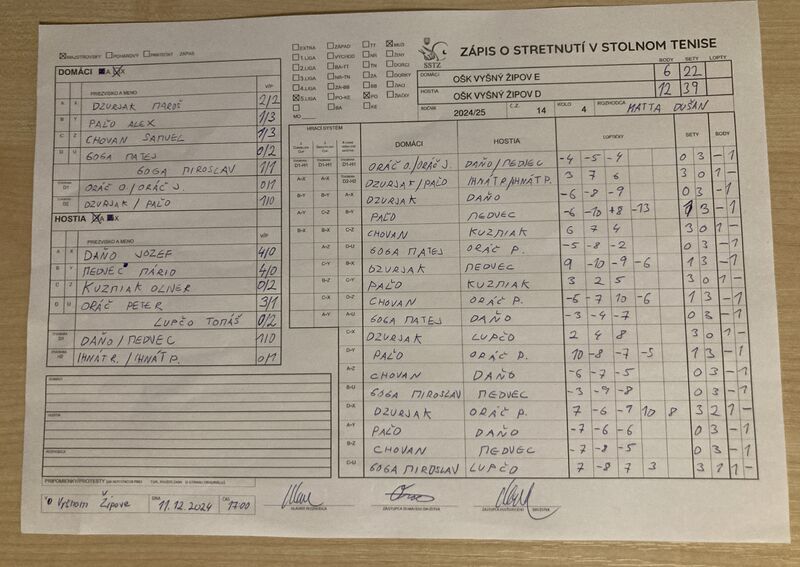 MAJSTROVSKÝ POHÁROVÝ PRIATEĽSKÝ ZÁPAS
DOMÁCI A X
PRIEZVISKO A MENO V/P
A X DZURJAK MAROŠ 2/2
B Y PAĽO ALEX 1/3
C Z CHOVAN SAMUEL 1/3
D U GOGA MATEJ 0/2
GOGA MIROSLAV 1/1
D1 ORÁČ O./ORÁČ J. 0/1
D2 DZURJAK / PAĽO 1/0
HOSTIA A X
PRIEZVISKO A MENO V/P
A X DAŇO JOZEF 4/0
B Y MEDVEC MÁRIO 4/0
C Z KUZMIAK OLIVER 0/2
D U ORÁČ PETER 3/1
LUPČO TOMÁŠ 0/2
DAŇO/MEDVEC 1/0
H2 IHNÁT R. / IHNÁT P. 0/1
DOMÁCI
HOSTIA
ROZHODCA
PRIPOMIENKY/PROTESTY
Vyšnom Žipove DŇA 11.12.2024 ČAS 17:00
EXTRA ZÁPAD TT MUŽI
1.LIGA VÝCHOD NR ŽENY
2.LIGA BA-TT TN DORCI
3.LIGA NR-TN ZA DORKY
4.LIGA ZA-BB BB ŽIACI
5.LIGA PO-KE PO ŽIAČKY
MO BA KE
SSTZ
ZÁPIS O STRETNUTÍ V STOLNOM TENISE
BODY SETY LOPTY
DOMÁCI OŠK VYŠNÝ ŽIPOV E 6 22
HOSTIA OŠK VYŠNÝ ŽIPOV D 12 39
ROČNÍK 2024/25 Č.Z. 14 KOLO 4 ROZHODCA MATTA DUŠAN
HRACÍ SYSTÉM DOMÁCI HOSTIA LOPTIČKY SETY BODY
D1-H1 D1-H1 D1-H1 ORÁČ O./ORÁČ J. DAŇO/MEDVEC -4 -5 -4 0 3 - 1
A-X D2-H2 DZURJAK/PAĽO IHNÁT R./IHNÁT P. 3 7 6 3 0 1 -
B-Y B-Y A-X DZURJAK DAŇO -6 -8 -9 0 3 - 1
A-Y C-Z B-Y PAĽO MEDVEC -6 -10 +8 -13 1 3 - 1
B-X C-Z CHOVAN KUZMIAK 6 7 4 3 0 1 -
A-Z D-U GOGA MATEJ ORÁČ P. -5 -8 -2 0 3 - 1
C-Y B-X DZURJAK MEDVEC 9 -10 -9 -6 1 3 - 1
B-Z C-Y PAĽO KUZMIAK 3 2 5 3 0 1 -
C-X D-Z CHOVAN ORÁČ P. -6 -7 10 -6 1 3 - 1
A-Y A-U GOGA MATEJ DAŇO -3 -4 -7 0 3 - 1
C-X DZURJAK LUPČO 2 4 8 3 0 1 -
D-Y PAĽO ORÁČ P. 10 -8 -7 -5 1 3 - 1
A-Z CHOVAN DAŇO -6 -7 -5 0 3 - 1
B-U GOGA MIROSLAV MEDVEC -3 -9 -8 0 3 - 1
D-X DZURJAK ORÁČ P. 7 -6 -7 10 8 3 2 1 -
A-Y PAĽO DAŇO -7 -6 -6 0 3 - 1
B-Z CHOVAN MEDVEC -7 -8 -5 0 3 - 1
C-U GOGA MIROSLAV LUPČO 7 -8 7 3 3 1 1 -
HLAVNÝ ROZHODCA ZÁSTUPCA DOMÁCEHO DRUŽSTVA ZÁSTUPCA HOSŤUJÚCEHO DRUŽSTVA